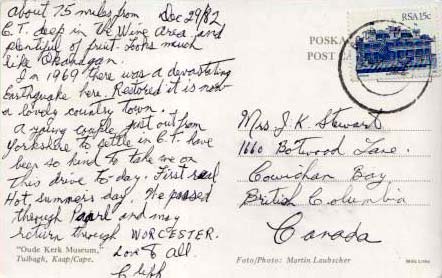 about 75 miles from Dec 29/82
C.T. deep in the Wine Area and
plentiful of fruit. Looks much
like Okanagan.
In 1969 there was a devastating
Earthquake here. Restored it is now
a lovely country town.
A young couple just out from
Yorkshire to settle in C.T. have
been so kind to take me on
this drive to-day. First real
Hot summers day. We passed
through Paarl and may
return through WORCESTER.
Love to all.
"Oude Kerk Museum,"
Tulbagh, Kaap/Cape.
RSA 15c
POSKA
POST CA
Mrs J. K. Stewart
1660 Botwood Lane.
Cowichan Bay
British Columbia
Canada
Foto/Photo: Martin Laubscher